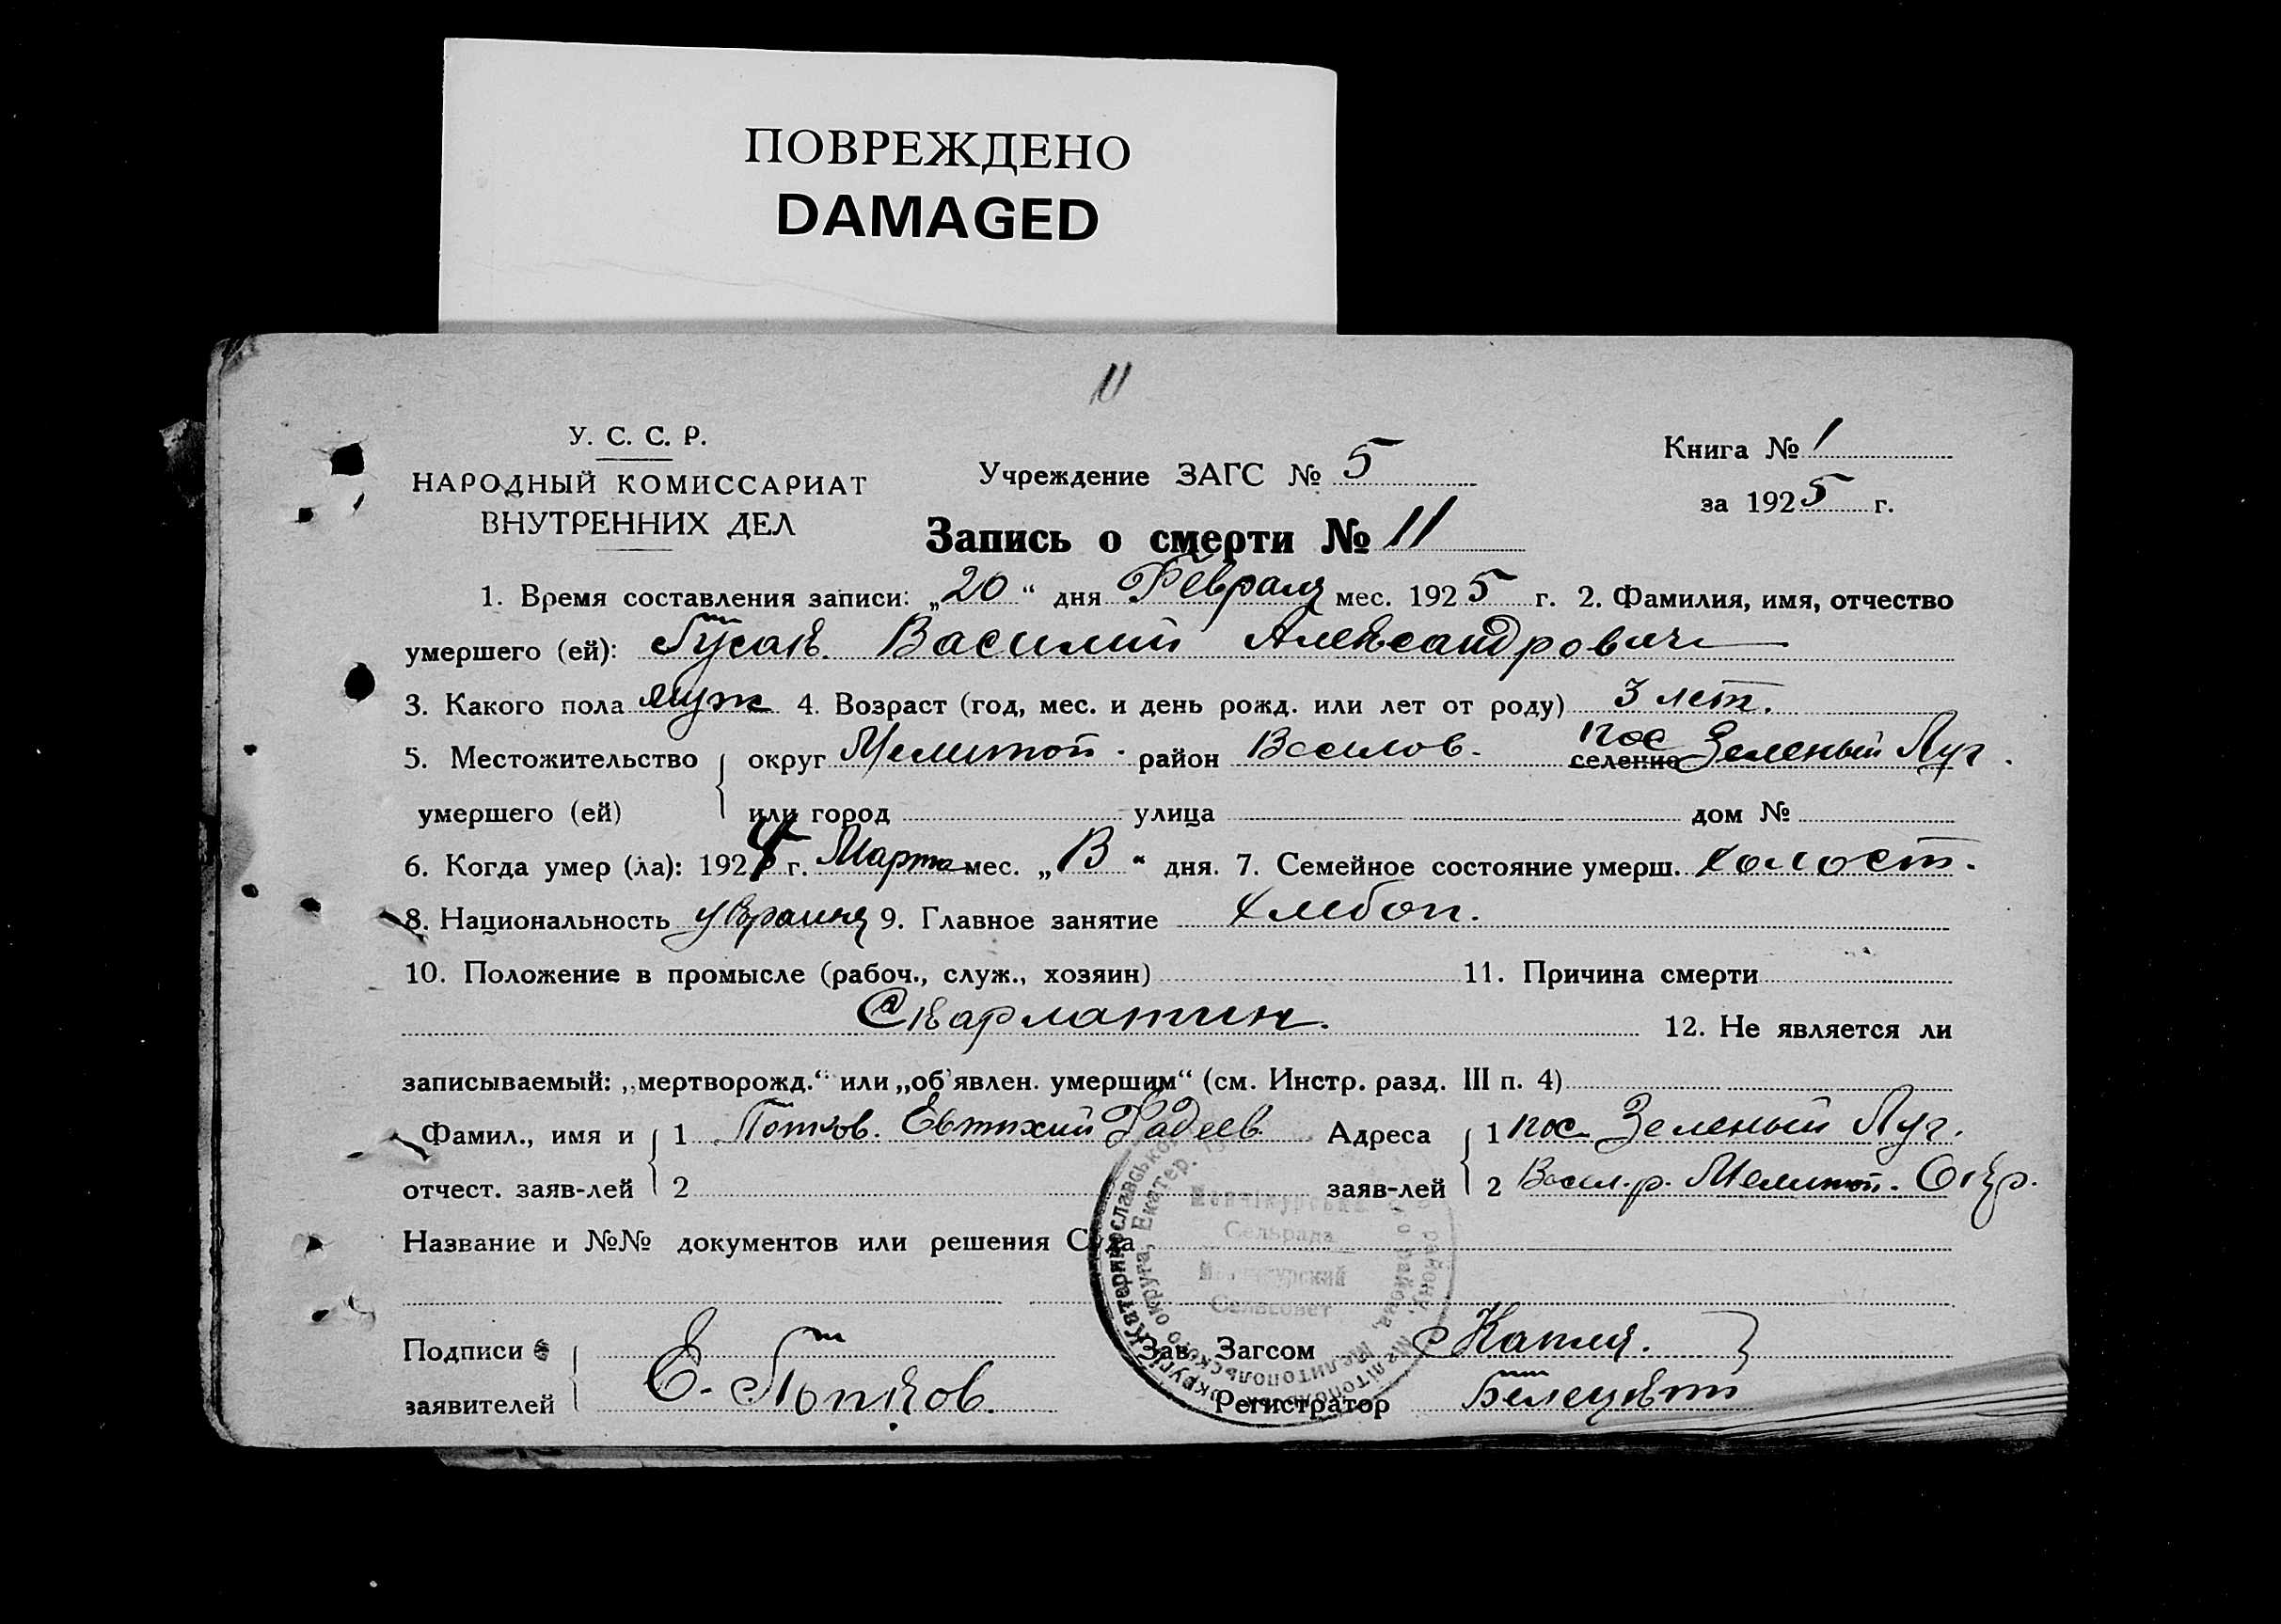 ПОВРЕЖДЕНО
DAMAGED
11
У. С. С. Р.
НАРОДНЫЙ КОМИССАРИАТ
ВНУТРЕННИХ ДЕЛ
Учреждение ЗАГС № 5
Книга № 1
за 1925 г.
Запись о смерти № 11
1. Время составления записи: „20“ дня Февраля мес. 1925 г. 2. Фамилия, имя, отчество
умершего (ей): Гусак Василий Александрович
3. Какого пола муж 4. Возраст (год, мес. и день рожд. или лет от роду) 3 лет.
5. Местожительство округ Мелитоп. район Васелов. пос селение Зеленый Луг.
умершего (ей) или город улица дом №
6. Когда умер (ла): 1924 г. Марта мес. „ “ дня. 7. Семейное состояние умерш. холост.
8. Национальность украинц 9. Главное занятие хлебоп.
10. Положение в промысле (рабоч., служ., хозяин) 11. Причина смерти
Скарлатин. 12. Не является ли
записываемый: „мертворожд.“ или „об'явлен. умершим“ (см. Инстр. разд. III п. 4)
Фамил., имя и 1 Евтихий Фадеев Адреса 1 пос. Зеленый Луг.
отчест. заяв-лей 2 заяв-лей 2 Васил. р. Мелитоп. Окр.
Название и №№ документов или решения Суда
Сельрада
Сельсовет
Подписи Зав. Загсом
заявителей Е. Регистратор Белецкий